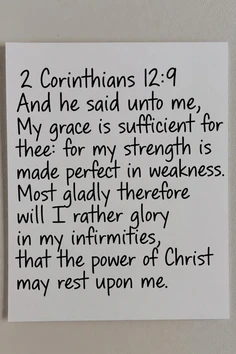 2 Corinthians 12:9
And he said unto me,
My grace is sufficient for
thee: for my strength is
made perfect in weakness.
Most gladly therefore
will I rather glory
in my infirmities,
that the power of Christ
may rest upon me.